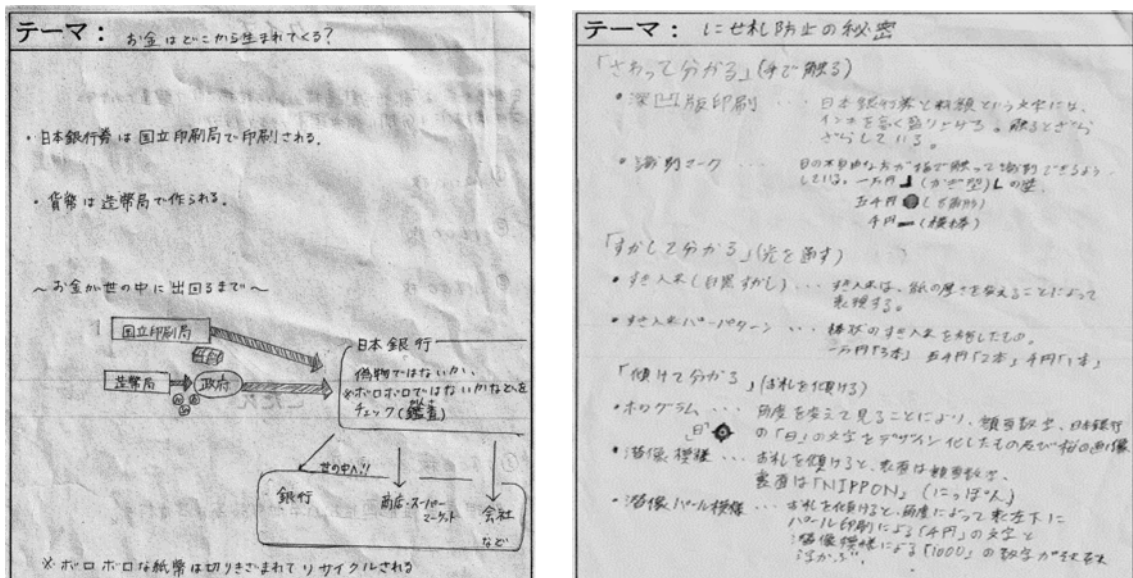 テーマ： お金はどこから生まれてくる？
・日本銀行券は国立印刷局で印刷される。
・貨幣は造幣局で作られる。
～お金が世の中に出回るまで～
国立印刷局
造幣局
政府
日本銀行
偽物ではないか、
※ボロボロではないかなどを
チェック(鑑査)
世の中へ!!
銀行
商店・スーパー
マーケット
会社
など
※ボロボロな紙幣は切りきざまれてリサイクルされる
テーマ： にせ札防止の秘密
「さわって分かる」(手で触る)
・深凹版印刷 ･･･ 日本銀行券と料額という文字には、
インキを高く盛り上げる。触るとざら
ざらしている。
・識別マーク ･･･ 目の不自由な方が指で触って識別できるよう
している。一万円 (かぎ型)Lの型
五千円 (八角形)
千円 (横棒)
「すかして分かる」(光を通す)
・すき入れ(白黒すかし) ･･･ すき入れは、紙の厚さを変えることによって
表現する。
・すき入れバーパターン ･･･ 棒状のすき入れを施したもの。
一万円「3本」 五千円「2本」 千円「1本」
「傾けて分かる」(お札を傾ける)
・ホログラム ･･･ 角度を変えて見ることにより、額面数字、日本銀行
「日」 の「日」の文字をデザイン化したもの及び桜の画像
・潜像模様 ･･･ お札を傾けると、表面は額面数字、
裏面は「NIPPON」(にっぽん)
・潜像パール模様 ･･･ お札を傾けると、角度によって表左下に
パール印刷による「千円」の文字と
潜像模様による「1000」の数字が
浮かぶ。